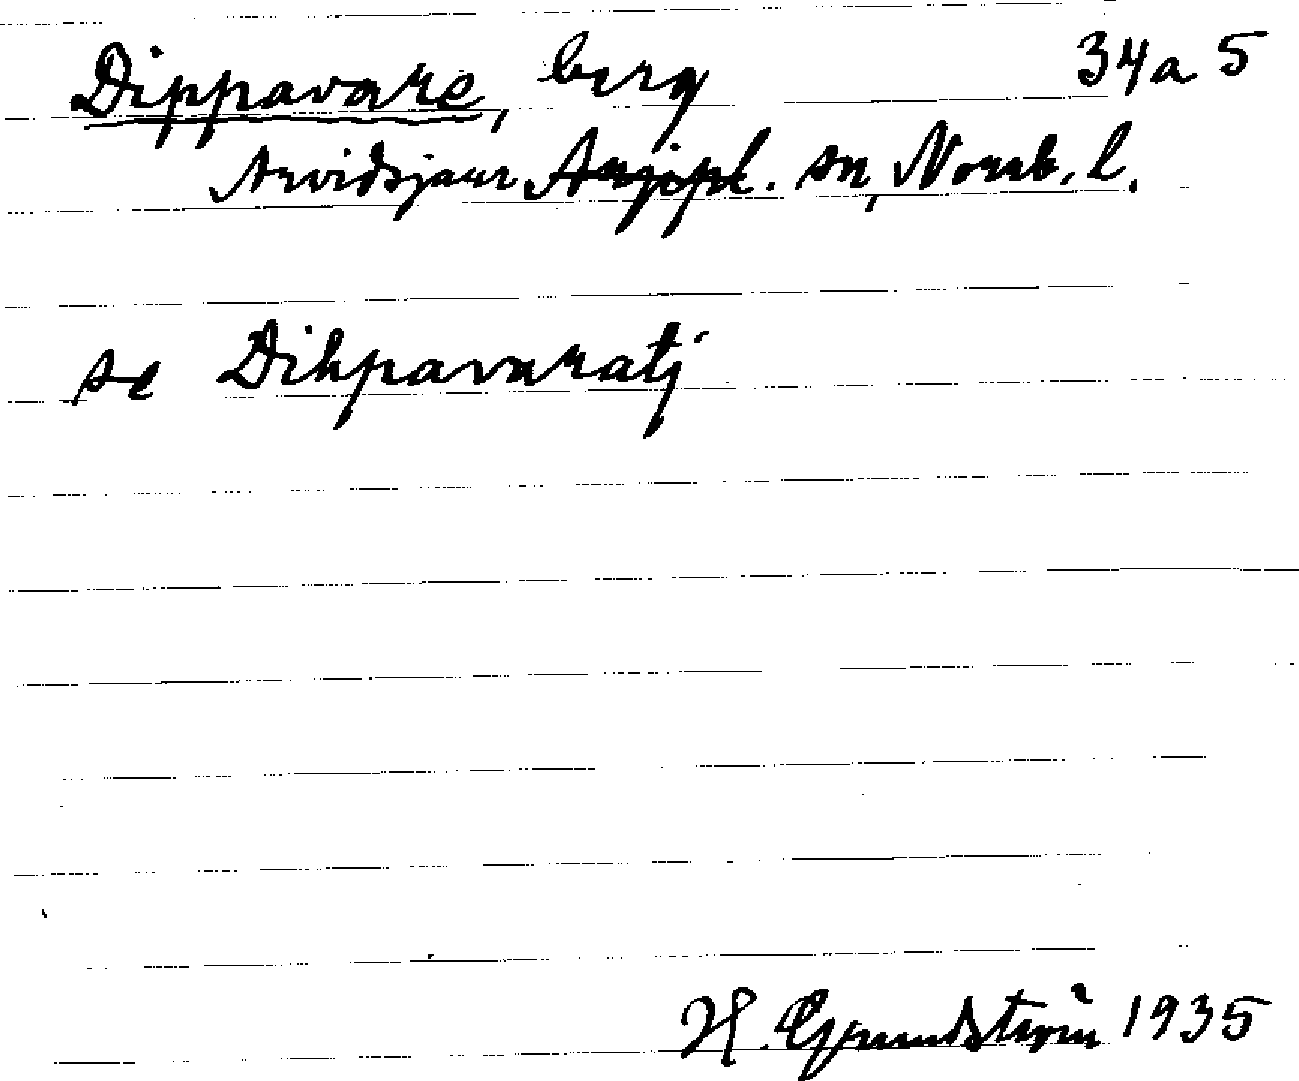 Dippavare, berg 34a 5
Arvidsjaur Arjepl. sn, Norrb. l.
se Dihpavaratj
H. Grundström 1935